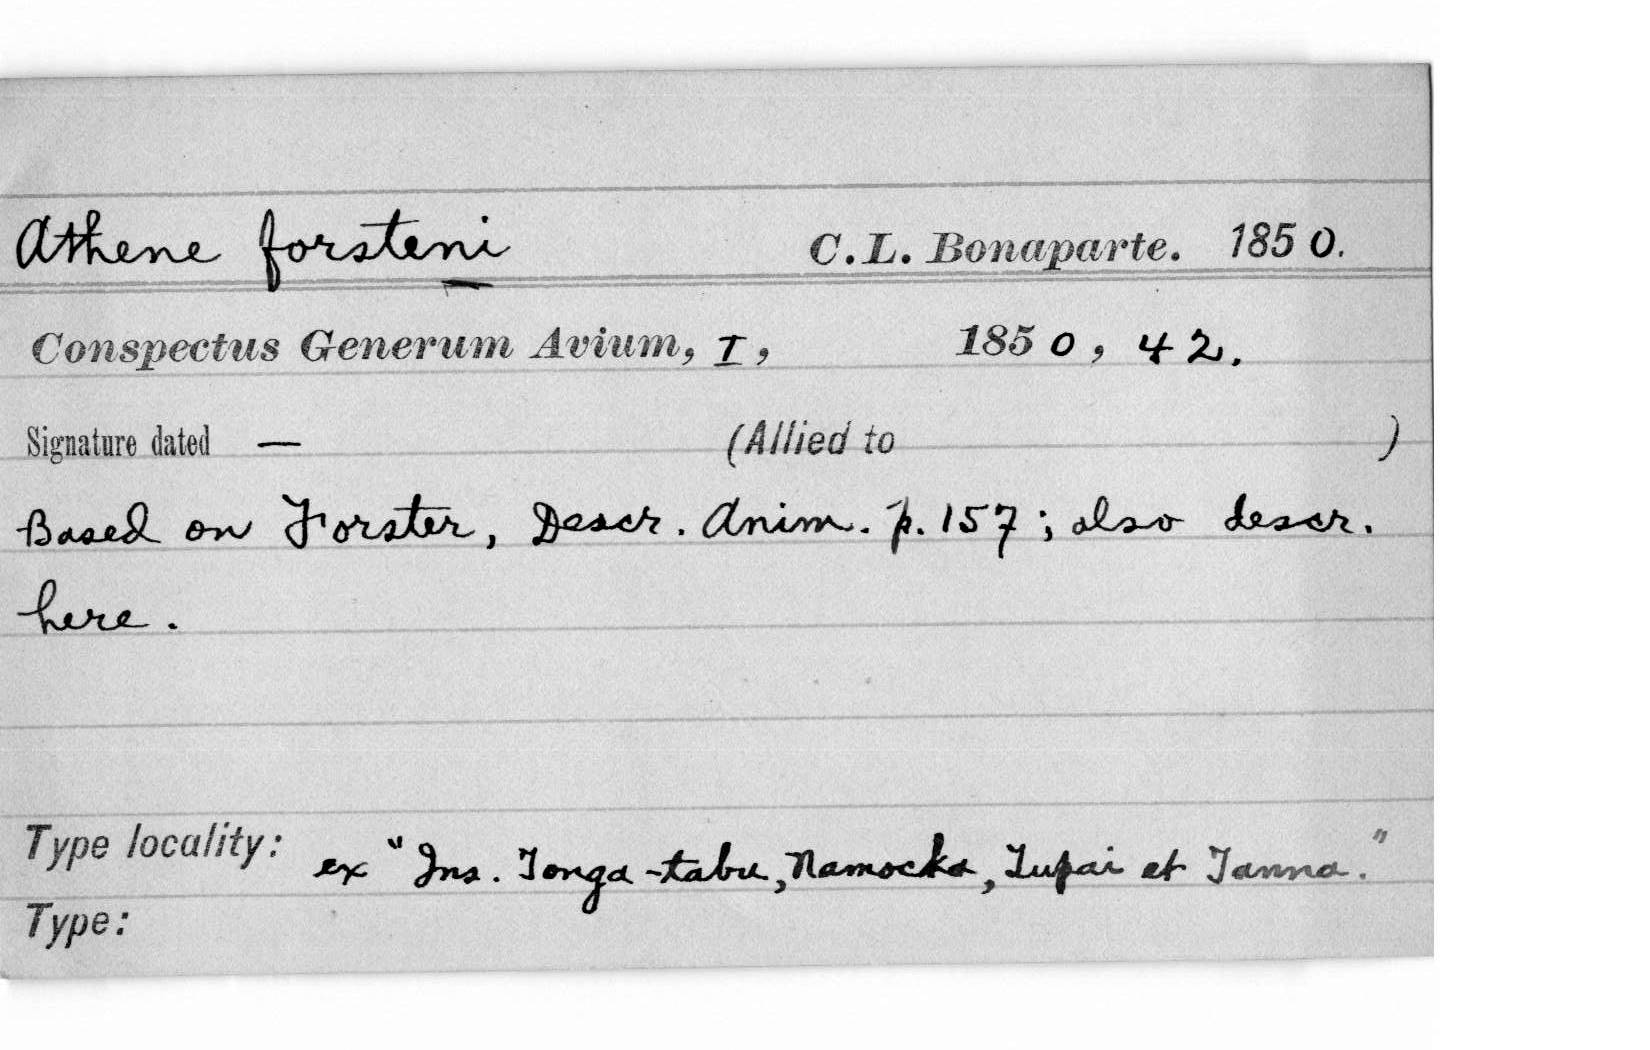 Athene forsteni C. L. Bonaparte. 1850.
Conspectus Generum Avium, I, 1850, 42.
Signature dated — (Allied to )
Based on Forster, Descr. Anim. p. 157; also descr.
here.
Type locality: ex "Ins. Tonga-tabu, Namocka, Tupai et Tanna."
Type: